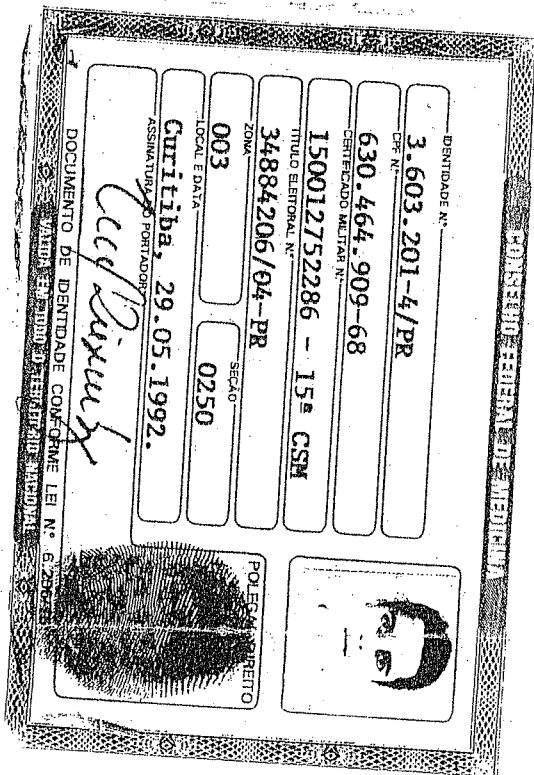 CONSELHO FEDERAL DE MEDICINA
IDENTIDADE Nº
3.603.201-4/PR
CPF Nº
630.464.909-68
CERTIFICADO MILITAR Nº
150012752286 - 15ª CSM
TITULO ELEITORAL Nº
34884206/04-PR
ZONA
003
SEÇÃO
0250
LOCAL E DATA
Curitiba, 29.05.1992.
ASSINATURA DO PORTADOR
POLEGAR DIREITO
DOCUMENTO DE IDENTIDADE CONFORME LEI Nº 6.206/75
VÁLIDA EM TODO O TERRITÓRIO NACIONAL